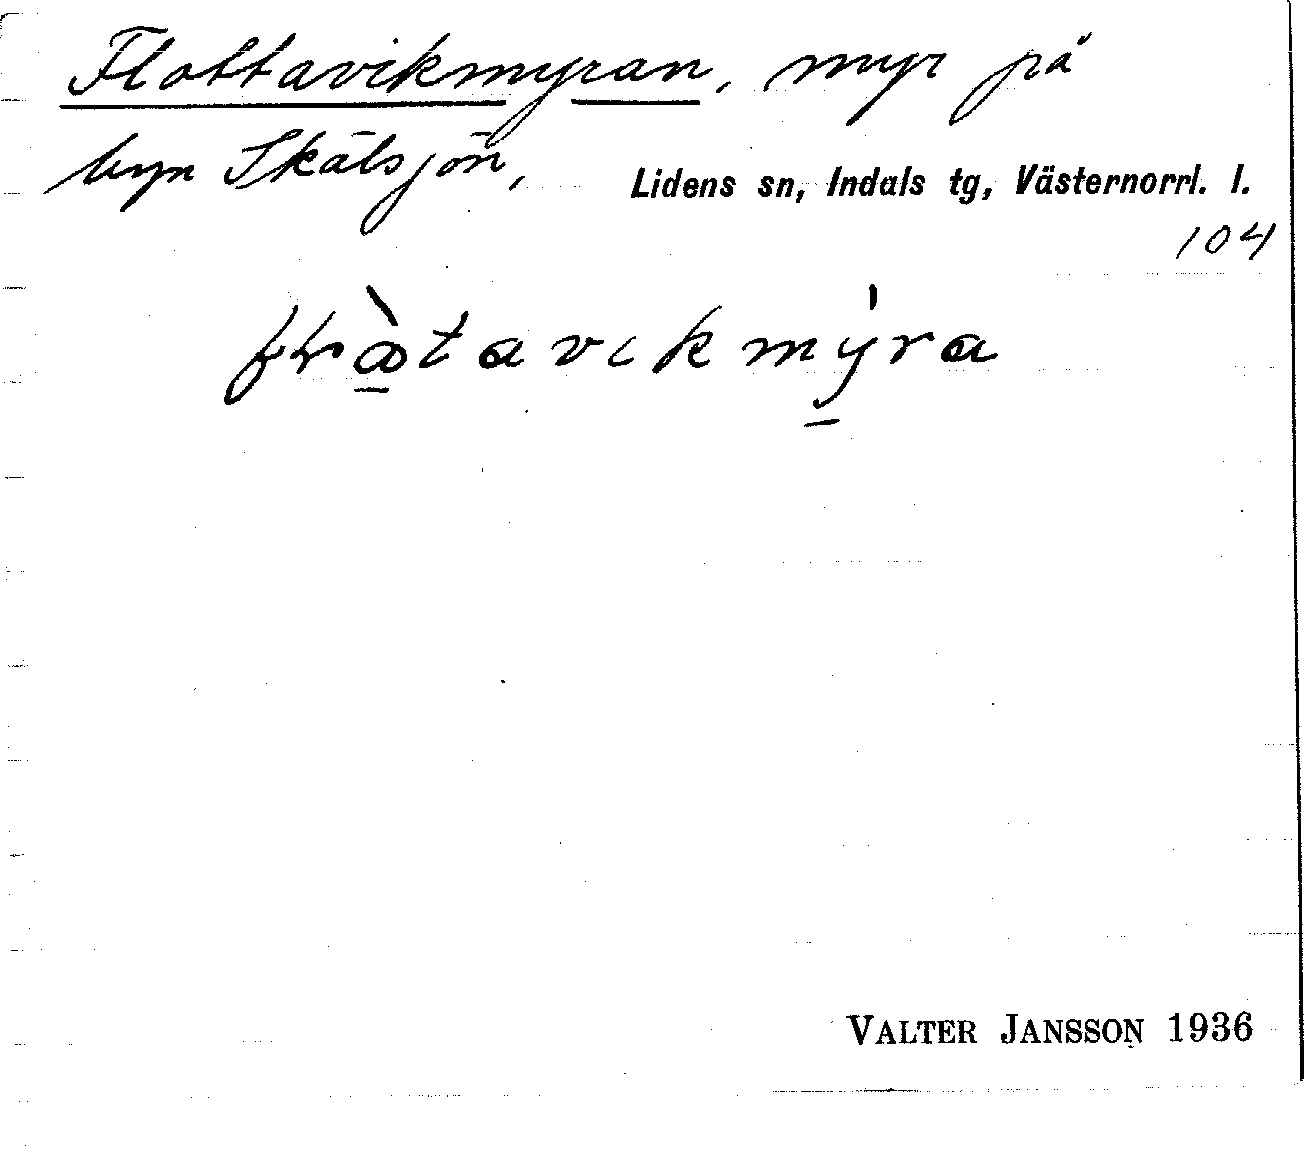 Flottavikmyran, myr på
byn Skälsjön, Lidens sn, Indals tg, Västernorrl. l.
104
VALTER JANSSON 1936